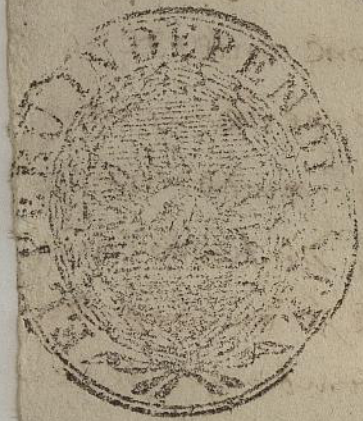 EL PERU YNDEPENDIENTE